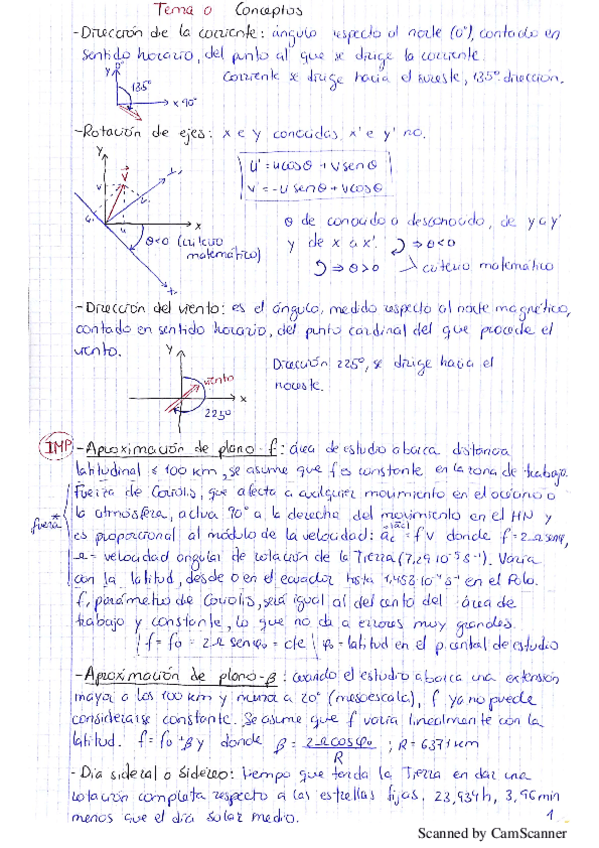 Tema 0 Conceptos
-Dirección de la corriente: ángulo respecto al norte (0º), contado en
sentido horario, del punto al que se dirige la corriente.
Corriente se dirige hacia el sureste, 135º dirección.
y
135º
x 90º
-Rotación de ejes: x e y conocidas x' e y' no.
y
u' = u cosθ + v senθ
v' = -u senθ + v cosθ
x
θ<0 (criterio
matemático)
θ de conocido a desconocido, de y a y'
y de x a x'. ⇒ θ<0
⇒ θ>0 criterio matemático
-Dirección del viento: es el ángulo, medido respecto al norte magnético,
contado en sentido horario, del punto cardinal del que procede el
viento.
Y
viento
x
225º
Dirección 225º, se dirige hacia el
noreste.
IMP -Aproximación de plano-f: área de estudio abarca distancia
latitudinal ≤ 100 km, se asume que f es constante en la zona de trabajo.
Fuerza de Coriolis, que afecta a cualquier movimiento en el océano o
la atmósfera, actúa 90º a la derecha del movimiento en el HN y
fuerza
es proporcional al módulo de la velocidad: ac = f v donde f = 2Ω senφ,
Ω = velocidad angular de rotación de la Tierra (7,29·10⁻⁵ s⁻¹). Varía
con la latitud, desde 0 en el ecuador hasta 1,458·10⁻⁴ s⁻¹ en el Polo.
f, parámetro de Coriolis, será igual al del centro del área de
trabajo y constante, lo que no da a errores muy grandes.
f = f₀ = 2Ω senφ₀ = cte φ₀ = latitud en el p. central de estudio
-Aproximación de plano-β: cuando el estudio abarca una extensión
mayor a los 100 km y menor a 20º (mesoescala), f ya no puede
considerarse constante. Se asume que f varía linealmente con la
latitud. f = f₀ + βy donde β = 2Ω cosφ₀ / R ; R = 6371 km
-Día sideral o sidéreo: tiempo que tarda la Tierra en dar una
rotación completa respecto a las estrellas fijas. 23,934h, 3,96 min
menos que el día solar medio.
1
Scanned by CamScanner